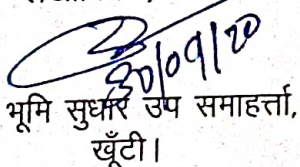 30/09/20
भूमि सुधार उप समाहर्त्ता,
खूँटी।